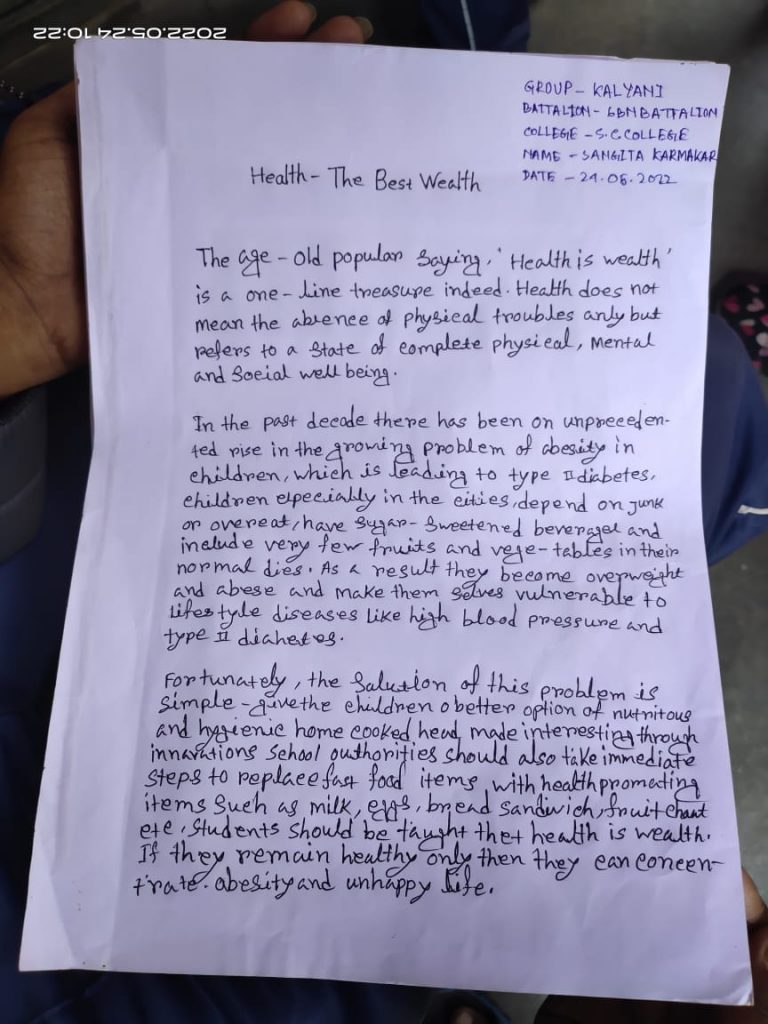 2022.05.24 10:22
GROUP - KALYANI
BATTALION - 6BN BATTALION
COLLEGE - S.C. COLLEGE
NAME - SANGITA KARMAKAR
DATE - 24.05.2022
Health - The Best Wealth
The age - old popular saying, 'Health is wealth'
is a one - line treasure indeed. Health does not
mean the absence of physical troubles only but
refers to a state of complete physical, mental
and social well being.
In the past decade there has been on unpreceden-
ted rise in the growing problem of obesity in
children, which is leading to type II diabetes,
children especially in the cities, depend on junk
or overeat, have sugar - sweetened beverages and
include very few fruits and vege - tables in their
normal dies. As a result they become overweight
and abese and make them selves vulnerable to
lifestyle diseases like high blood pressure and
type II diabetes.
Fortunately, the solution of this problem is
simple - give the children a better option of nutritous
and hygienic home cooked head, made interesting through
innavations school outhorities should also take immediate
steps to replace fast food items with health promating
items such as milk, eggs, bread sandwich, fruit chaat
etc, students should be taught that health is wealth.
If they remain healthy only then they can concen-
trate. abesity and unhappy life.